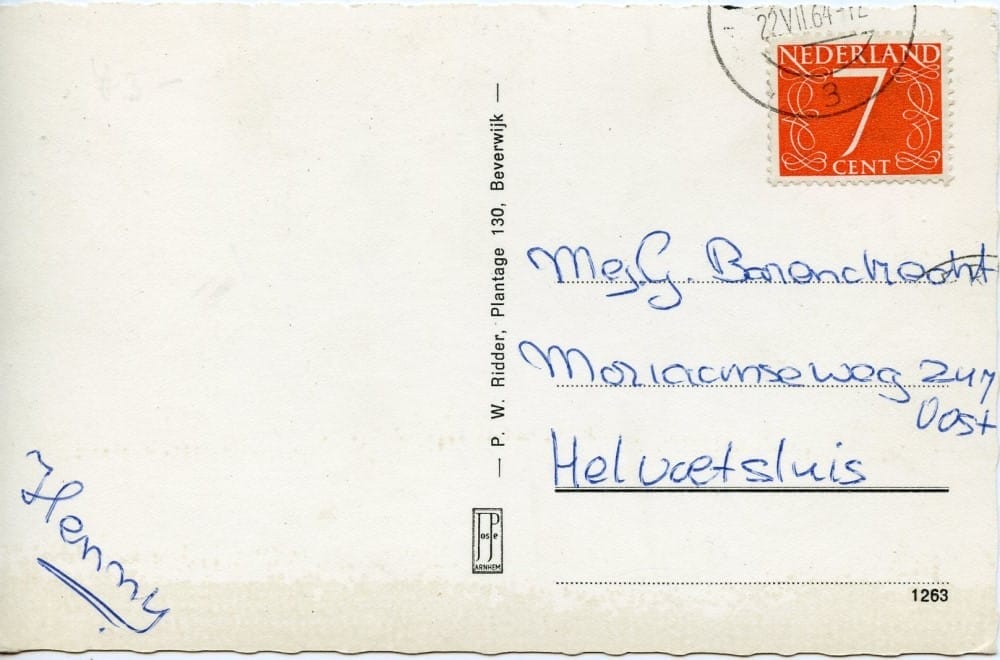 22 VII.64-12
3
NEDERLAND
7
CENT
— P. W. Ridder, Plantage 130, Beverwijk —
Mej. G. Barendrecht
Moriaanseweg
Oost
Helvoetsluis
Henny
JosPe
ARNHEM
1263